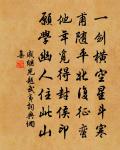 一劍橫空星斗寒
甫隨平北復征蠻
他年覓得封侯印
願學幽人住此山
戚繼光題武夷詞典網
集